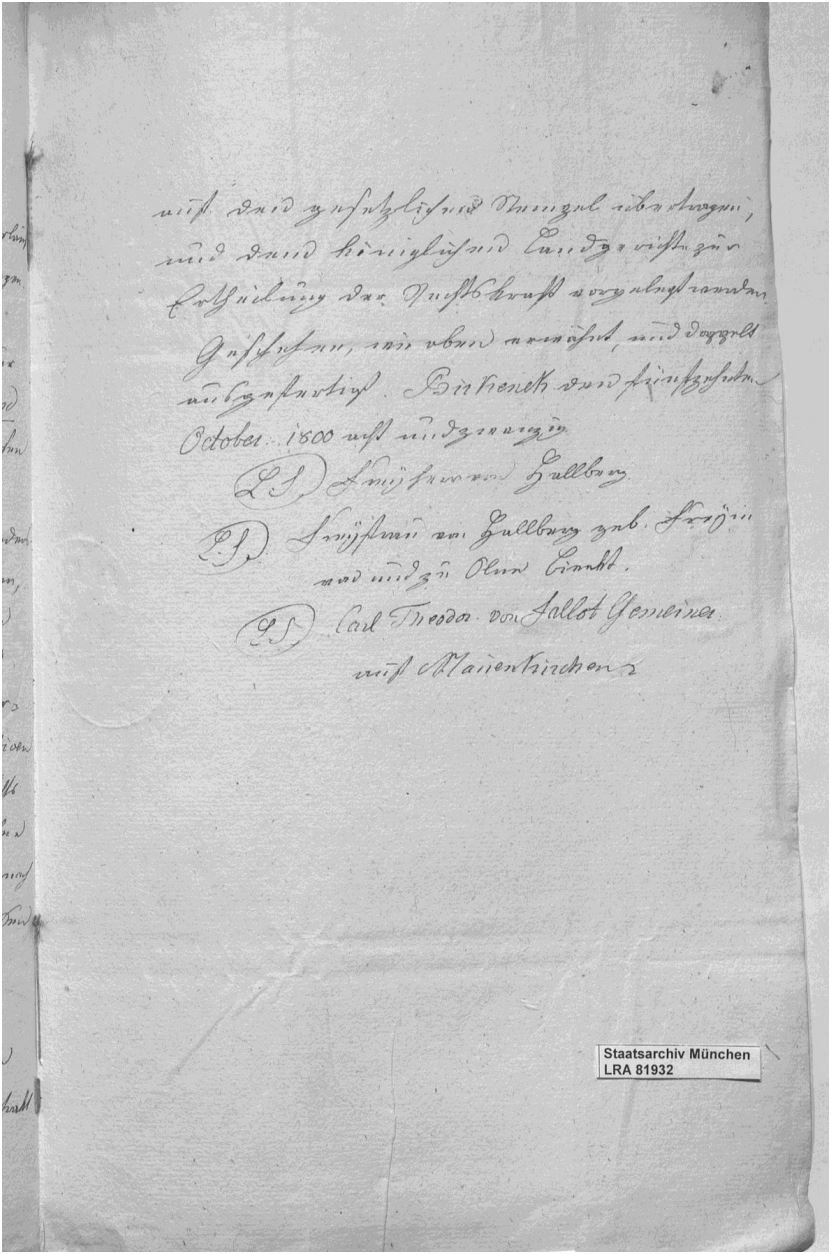 auf den gesetzlichen Stempel übertragen,
und dem königlichen Landgerichte zur
Ertheilung der Rechtskraft vorgelegt werden.
Geschehen, wie oben erwähnt, und doppelt
ausgefertigt. Birkeneck den fünfzehnten
October 1800 acht und zwanzig
L.S. Freyherr von Hallberg
L.S. Freyfrau von Hallberg geb. Freyin
von und zu
L.S. Carl Theodor von Sallot Gemeiner
auf Mauerkirchen
Staatsarchiv München
LRA 81932